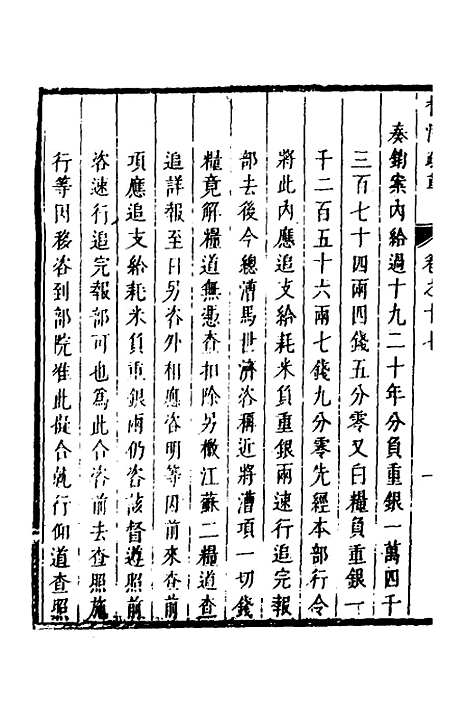 卷之十七
奏銷案內給過十九二十年分負重銀一萬四千
三百七十四兩四錢五分零又白糧負重銀一
千二百五十六兩七錢九分零先經本部行令
將此內應追支給耗米負重銀兩速行追完報
部去後今總漕馬世濟咨稱近將漕項一切錢
糧竟解糧道無憑查扣除另檄江蘇二糧道查
追詳報至日另咨外相應咨明等因前來查前
項應追支給耗米負重銀兩仍咨該督遵照前
咨速行追完報部可也為此合咨前去查照施
行等因移咨到部院准此擬合就行仰道查照